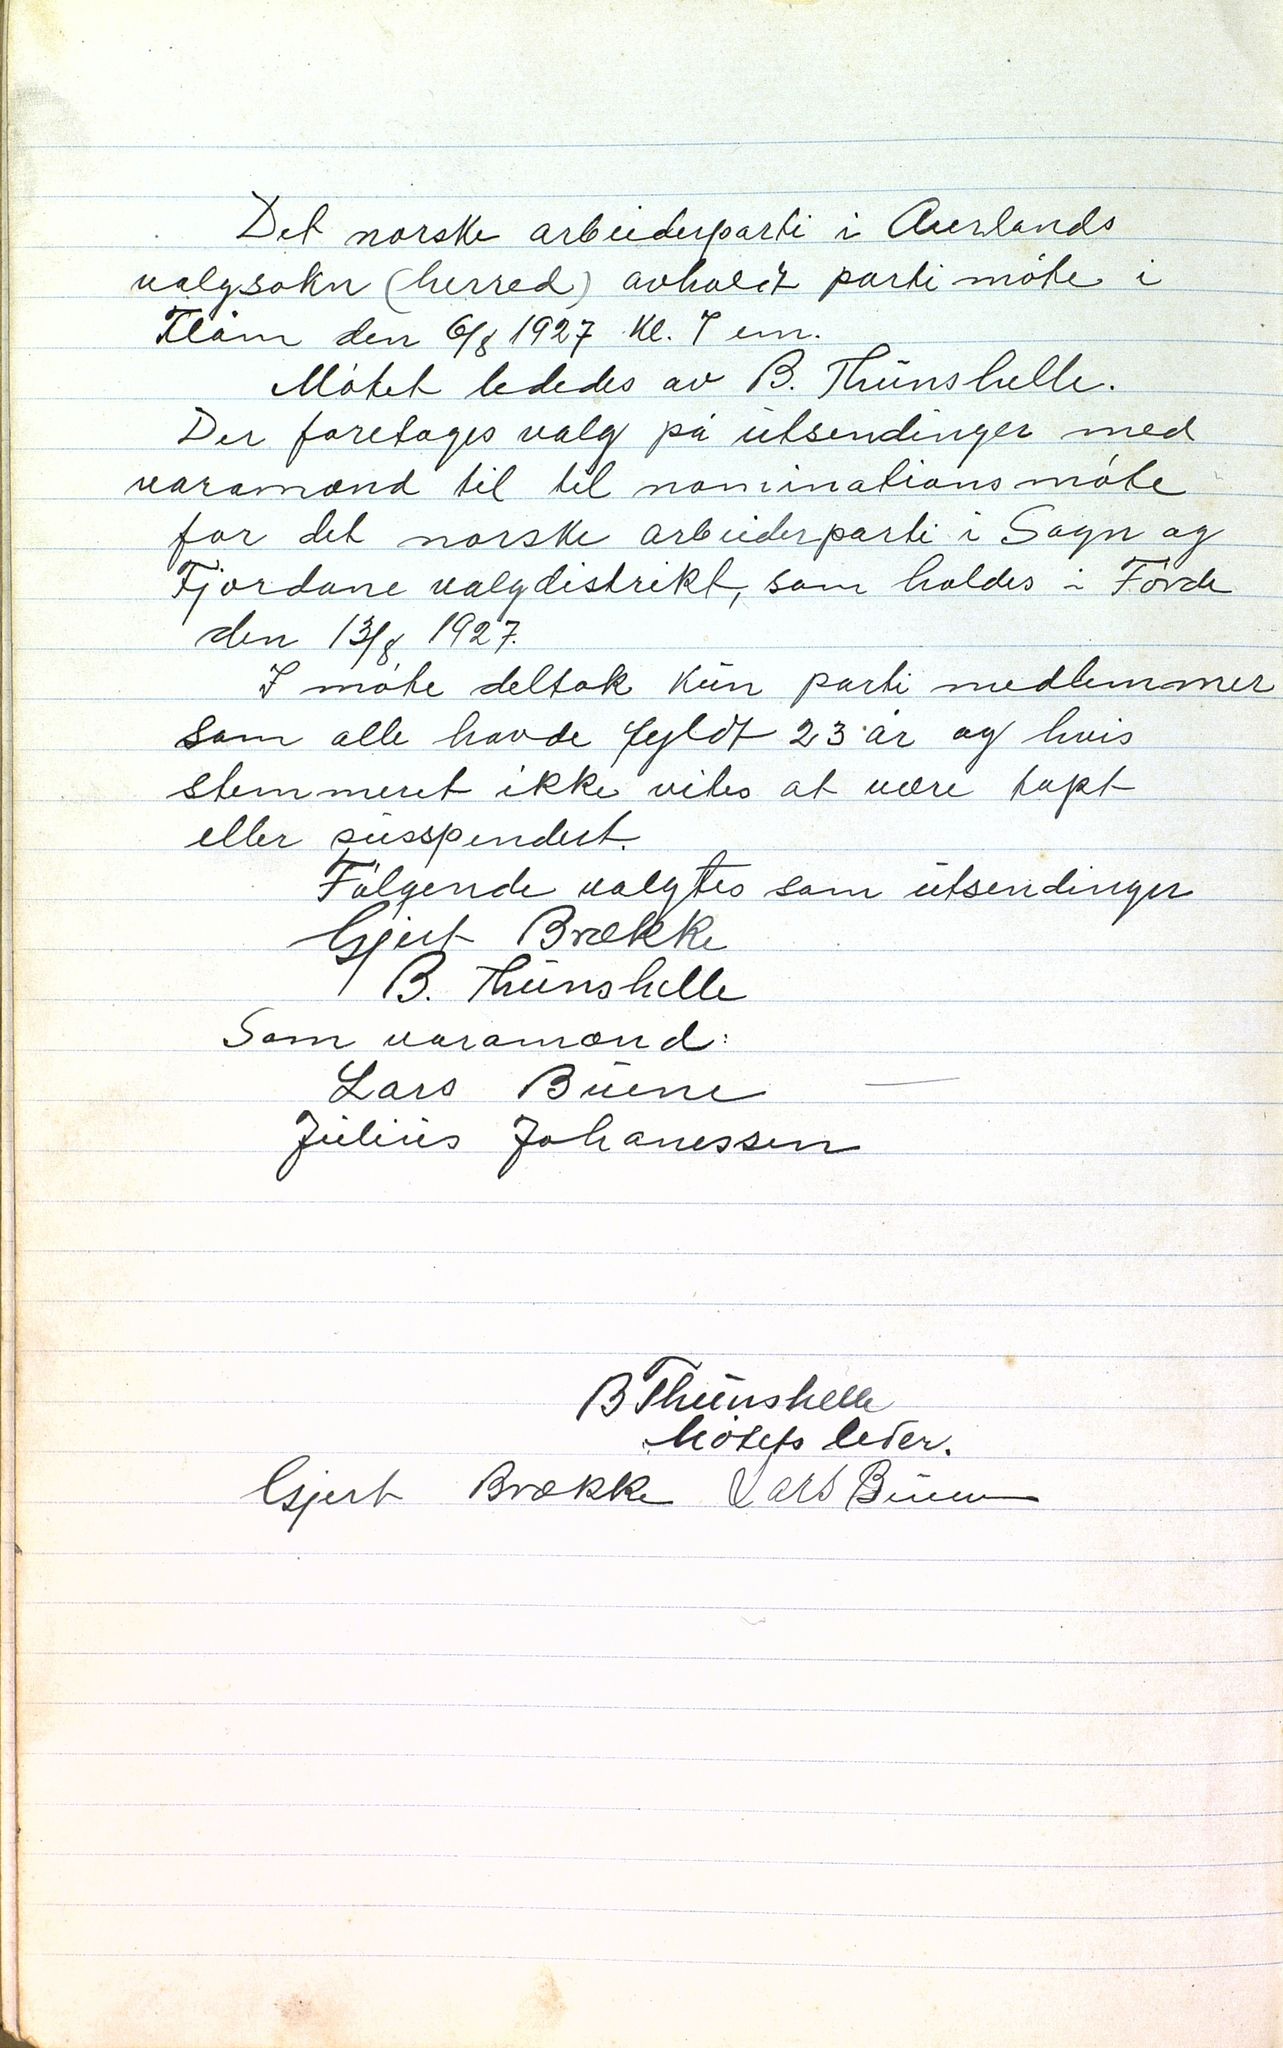 Det norske arbeiderparti i Aurlands
valgsokn (herred) avholdt parti møte i
Flåm den 6/8 1927 kl. 7 em.
Møtet lededes av B. Thünshelle.
Der foretoges valg på utsendinger med
varamænd til til nominationsmøte
for det norske arbeiderparti i Sogn og
Fjordane valgdistrikt, som holdes i Førde
den 13/8 1927.
I møte deltok kun parti medlemmer
som alle havde fyldt 23 år og hvis
stemmeret ikke vites at være tapt
eller susspendert.
Følgende valgtes som utsendinger
Gjert Brække
B. Thünshelle
Som varamænd:
Lars Buene
Julius Johanessen
B Thünshelle
Møtets leder.
Gjert Brække Lars Buene